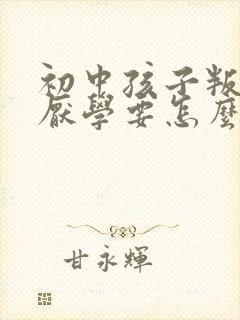 初中孩子叛
厭學要怎麼
甘永輝